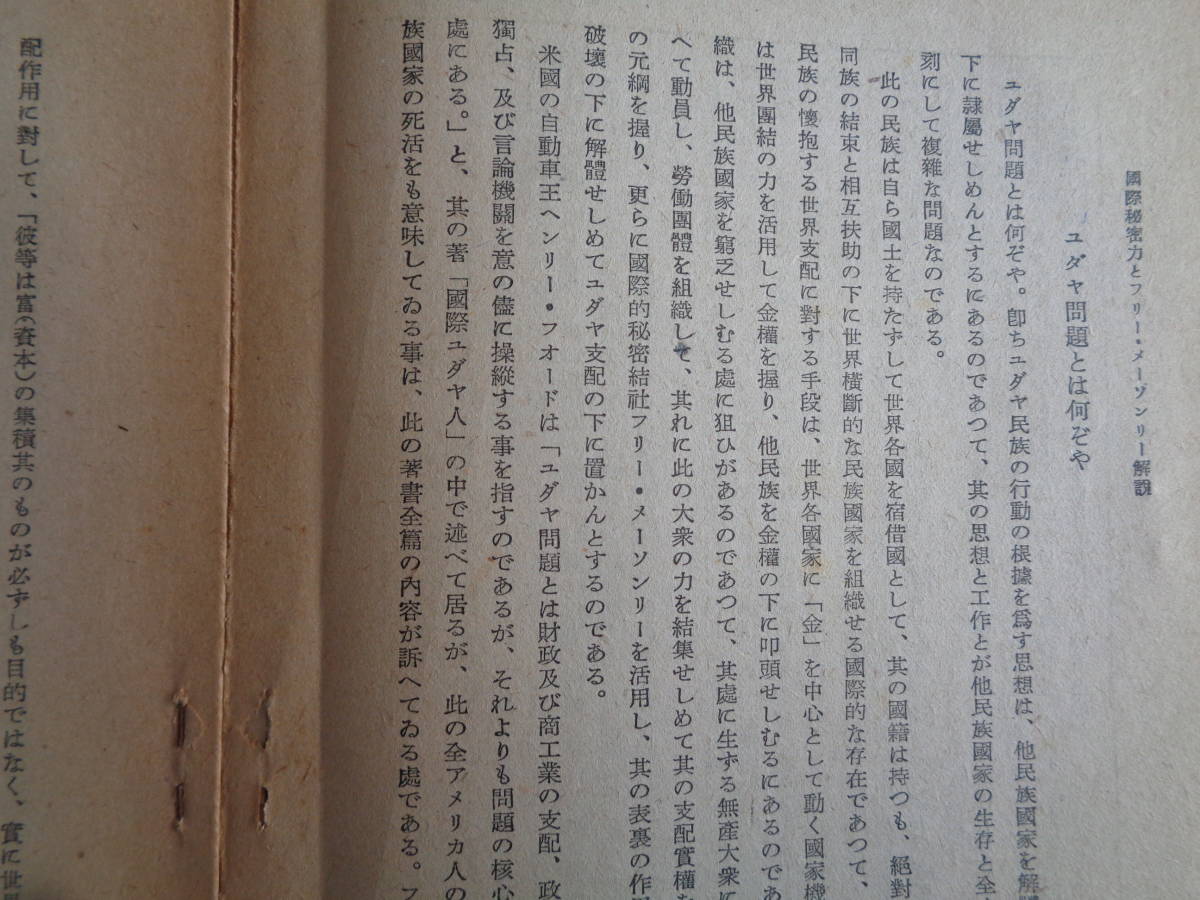 國際秘密力とフリー・メーゾンリー解說
ユダヤ問題とは何ぞや
ユダヤ問題とは何ぞや。卽ちユダヤ民族の行動の根據を爲す思想は、他民族國家を解體
下に隷屬せしめんとするにあるのであつて、其の思想と工作とが他民族國家の生存と全
刻にして複雜な問題なのである。
此の民族は自ら國土を持たずして世界各國を宿借國として、其の國籍は持つも、絕對
同族の結束と相互扶助の下に世界橫斷的な民族國家を組織せる國際的な存在であつて、
民族の懷抱する世界支配に對する手段は、世界各國家に「金」を中心として動く國家機
は世界團結の力を活用して金權を握り、他民族を金權の下に叩頭せしむるにあるのであ
織は、他民族國家を窮乏せしむる處に狙ひがあるのであつて、其處に生ずる無產大衆に
へて動員し、勞働團體を組織して、其れに此の大衆の力を結集せしめて其の支配實權を
の元綱を握り、更らに國際的秘密結社フリー・メーソンリーを活用し、其の表裏の作用
破壞の下に解體せしめてユダヤ支配の下に置かんとするのである。
米國の自動車王ヘンリー・フオードは「ユダヤ問題とは財政及び商工業の支配、政
獨占、及び言論機關を意の儘に操縱する事を指すのであるが、それよりも問題の核心
處にある。」と、其の著「國際ユダヤ人」の中で述べて居るが、此の全アメリカ人の
族國家の死活をも意味してゐる事は、此の著書全篇の內容が訴へてゐる處である。フ
配作用に對して、「彼等は富（資本）の集積其のものが必ずしも目的ではなく、實に世界